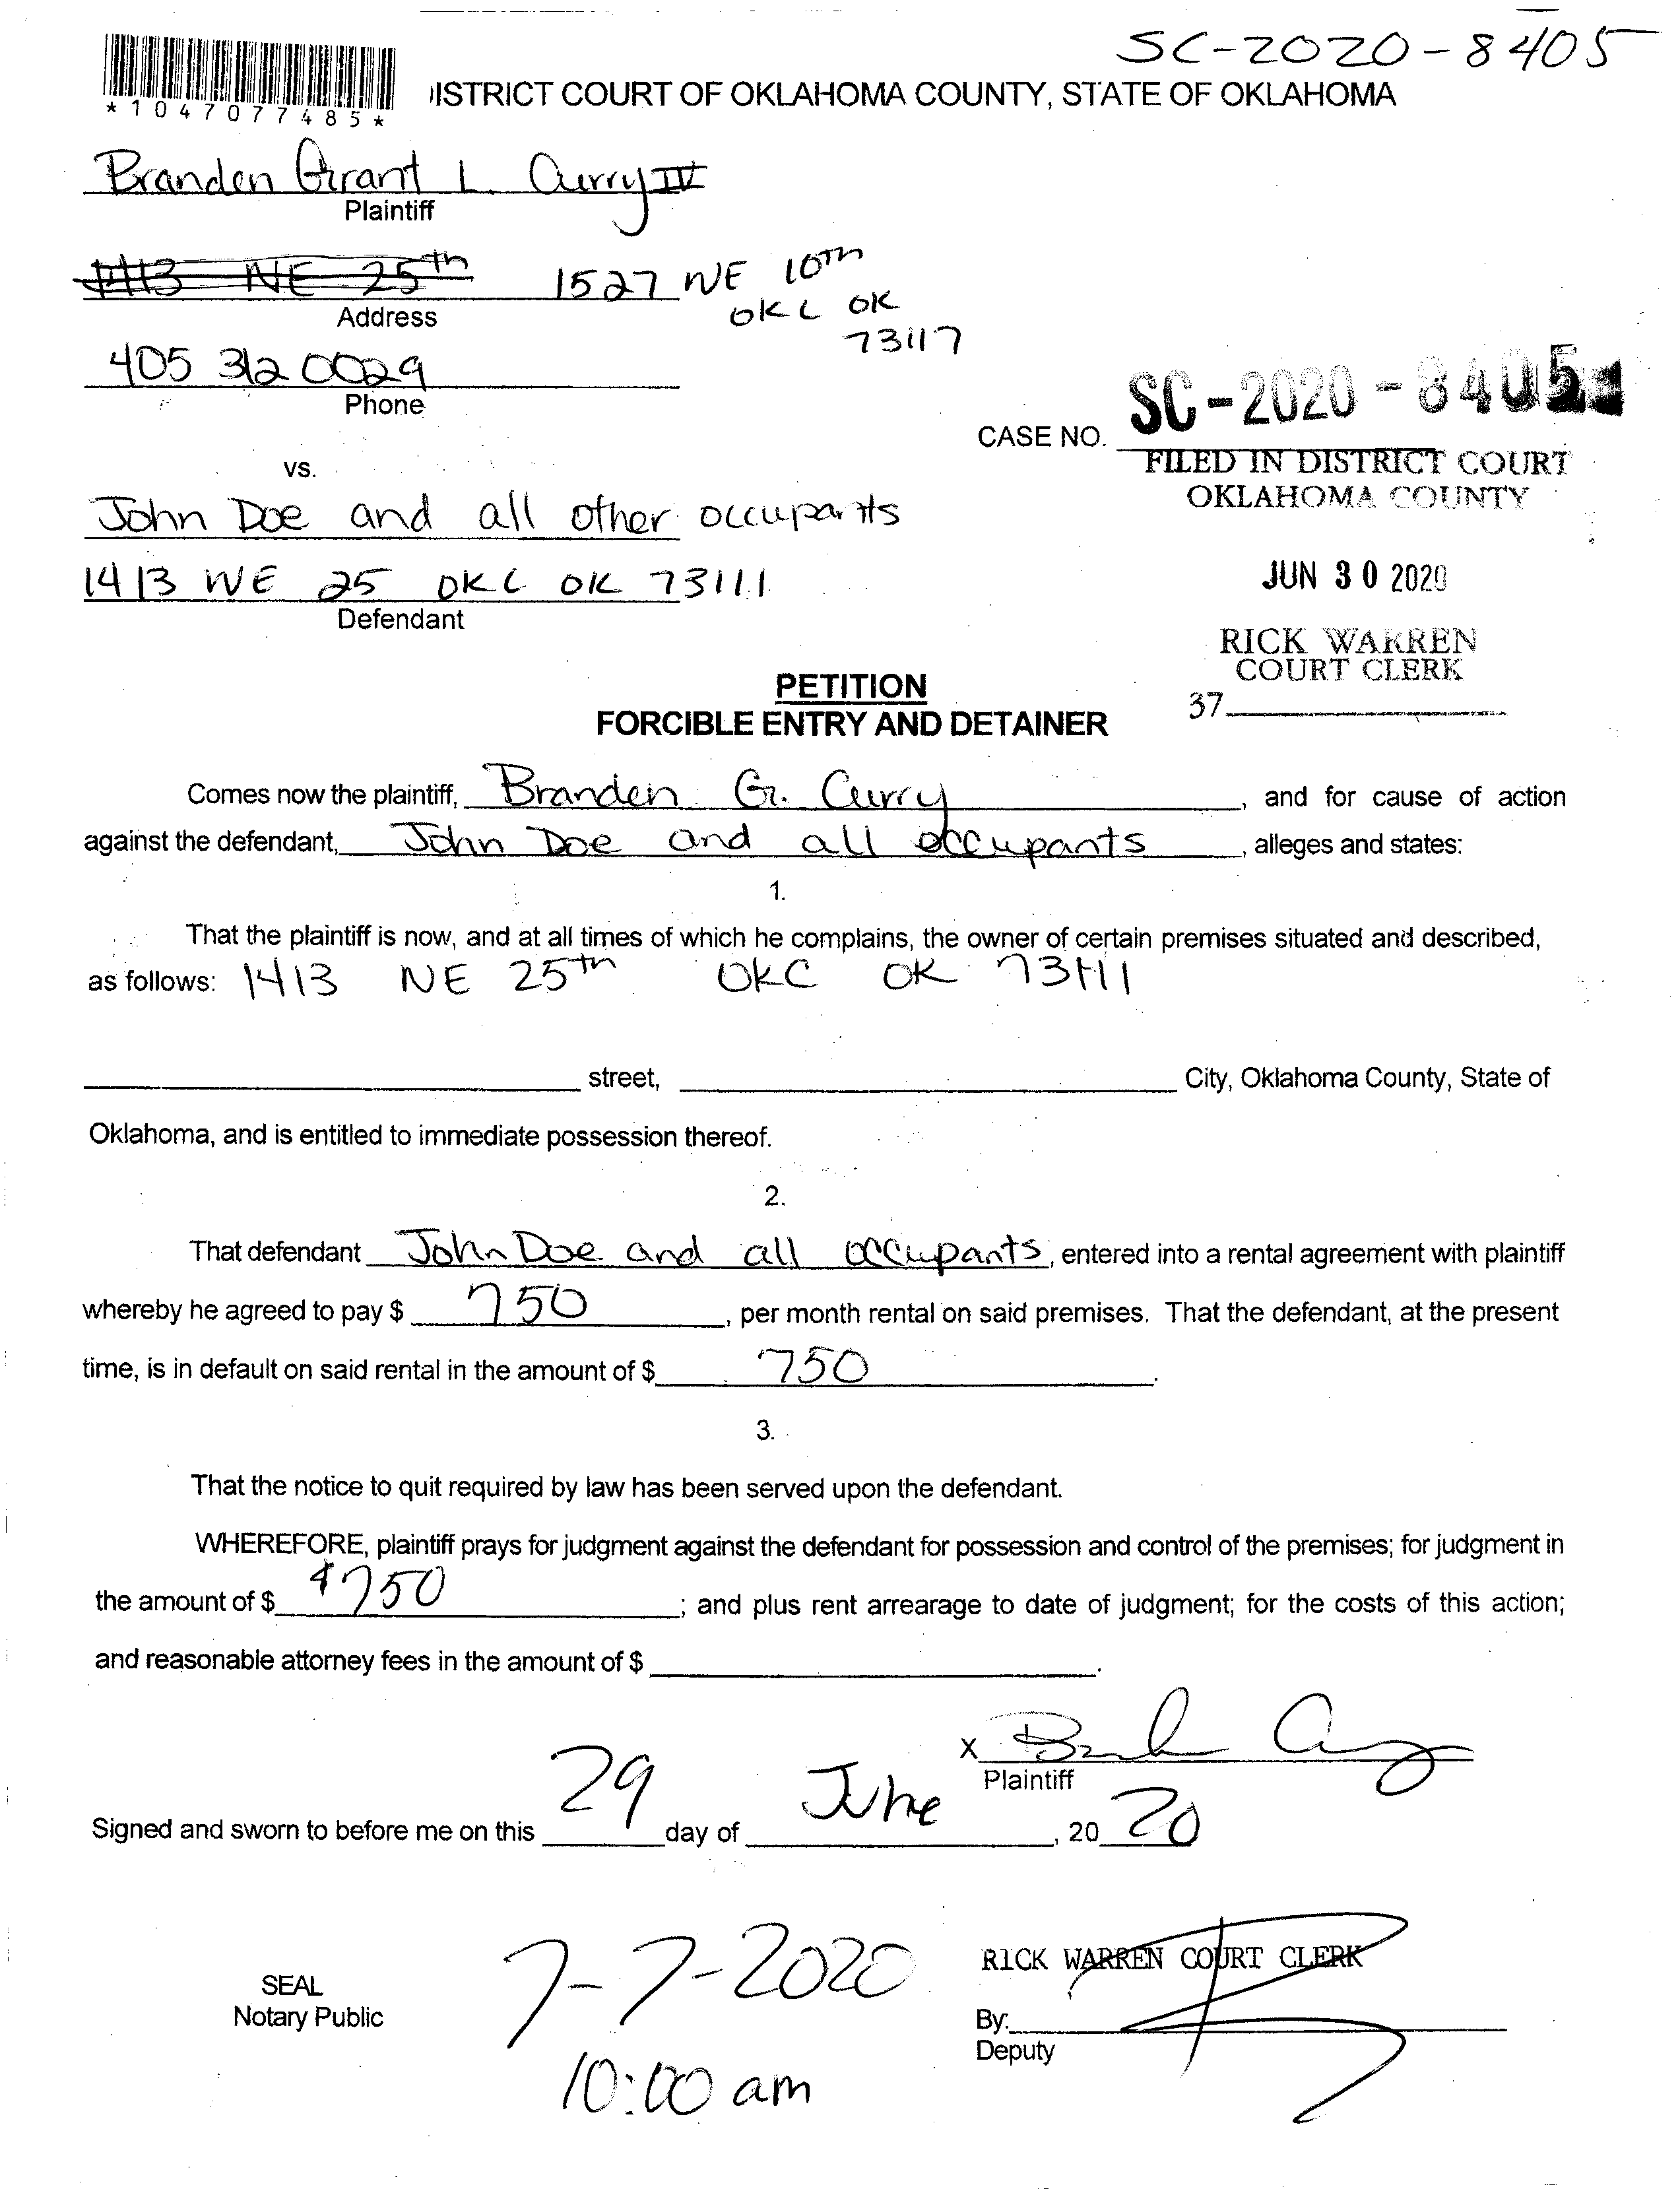 SC-2020-8405
*1047077485*
ISTRICT COURT OF OKLAHOMA COUNTY, STATE OF OKLAHOMA
Branden Grant L. Curry IV
Plaintiff
1413 NE 25th 1527 NE 10TH
Address OKC OK
73117
405 312 0029
Phone
SC-2020-8405
CASE NO.
FILED IN DISTRICT COURT
OKLAHOMA COUNTY
vs.
John Doe and all other occupants
1413 NE 25 OKC OK 73111
Defendant
JUN 30 2020
RICK WARREN
COURT CLERK
37
PETITION
FORCIBLE ENTRY AND DETAINER
Comes now the plaintiff, Branden G. Curry, and for cause of action
against the defendant, John Doe and all occupants, alleges and states:
1.
That the plaintiff is now, and at all times of which he complains, the owner of certain premises situated and described,
as follows: 1413 NE 25th OKC OK 73111
street, City, Oklahoma County, State of
Oklahoma, and is entitled to immediate possession thereof.
2.
That defendant John Doe and all occupants, entered into a rental agreement with plaintiff
whereby he agreed to pay $ 750, per month rental on said premises. That the defendant, at the present
time, is in default on said rental in the amount of $ 750.
3.
That the notice to quit required by law has been served upon the defendant.
WHEREFORE, plaintiff prays for judgment against the defendant for possession and control of the premises; for judgment in
the amount of $ $750; and plus rent arrearage to date of judgment; for the costs of this action;
and reasonable attorney fees in the amount of $ .
X
Plaintiff
Signed and sworn to before me on this 29 day of June, 2020
SEAL
Notary Public
7-7-2020
10:00 am
RICK WARREN COURT CLERK
By:
Deputy